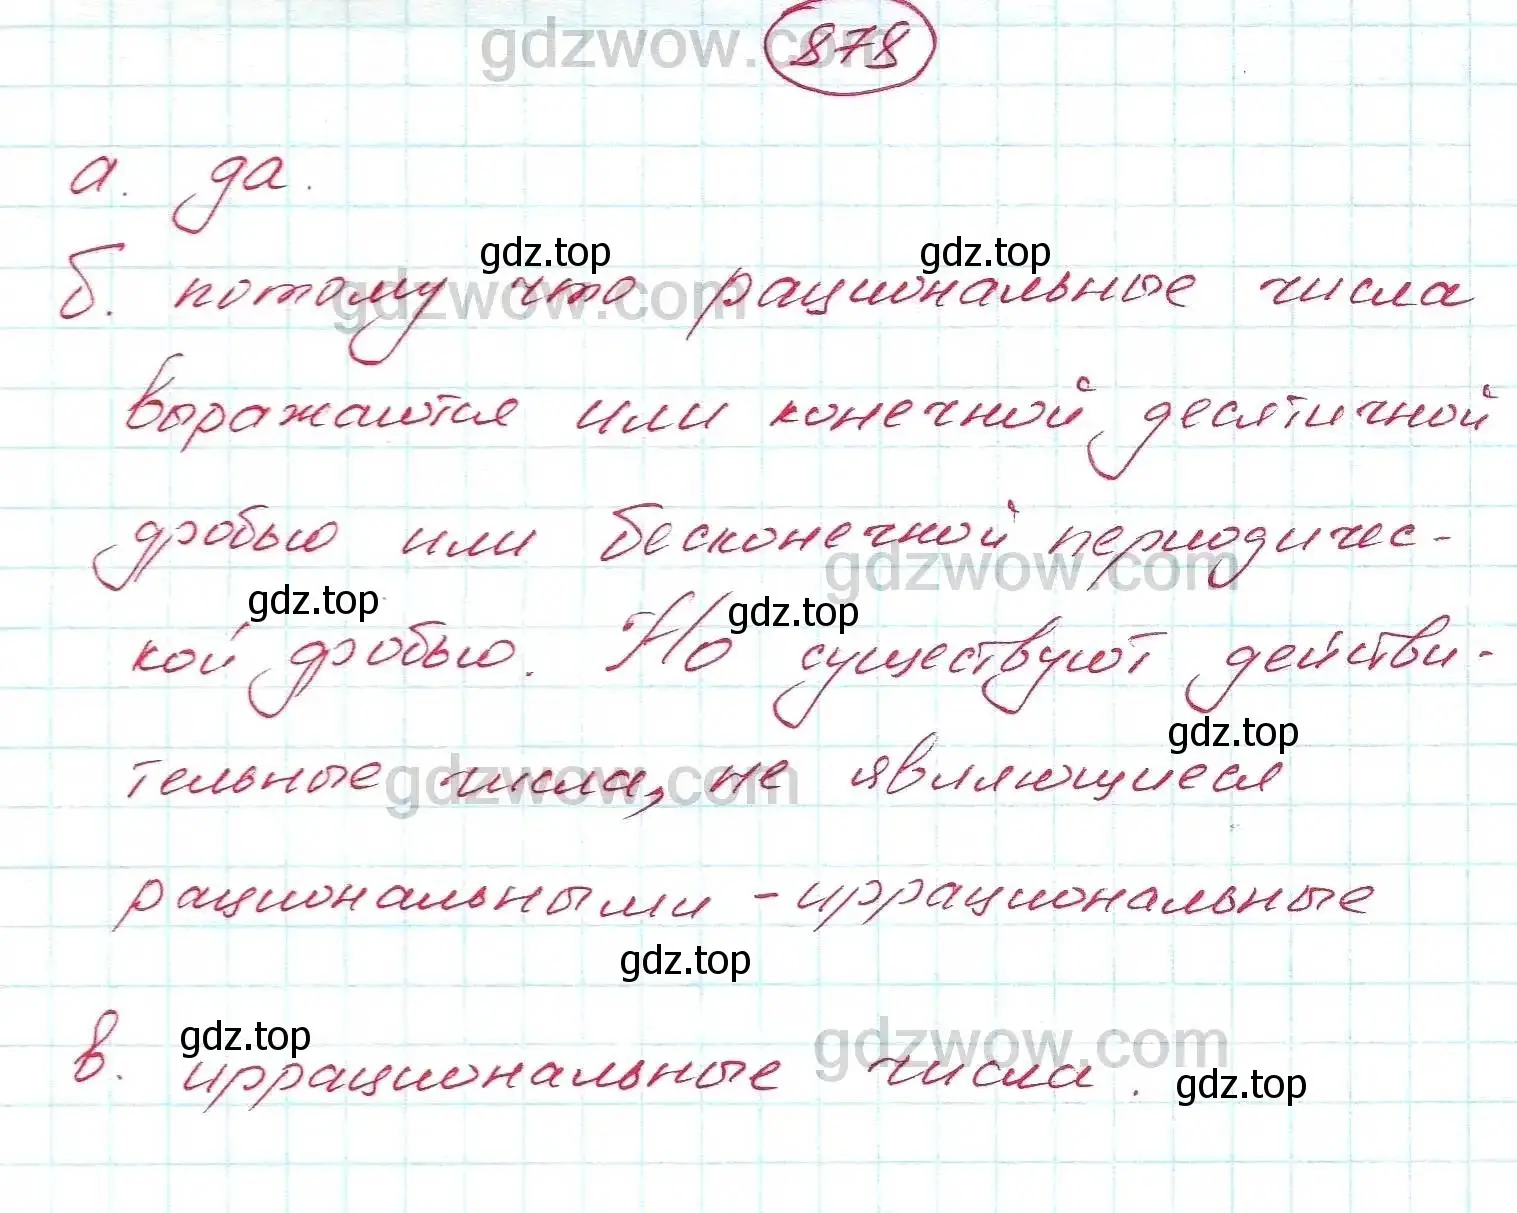 gdzwow.com
878
а. да.
gdz.top gdz.top
б. потому что рациональные числа
gdzwow.com
выражаются или конечной десятичной
дробью или бесконечной периодичес-
gdzwow.com
gdz.top gdz.top
кой дробью. Но существуют действи-
gdz.top
тельные числа, не являющиеся
gdzwow.com
рациональными - иррациональные
gdz.top
gdz.top gdzwow.com
в. иррациональные числа.
gdz.top